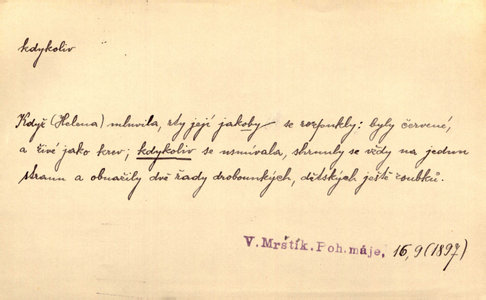 kdykoliv
Když (Helma) mluvila, rty její jakoby se rozpukly: byly červené,
a živé jako krev; kdykoliv se usmívala, shrnuly se vždy na jednu
stranu a obnažily dvě řady drobounkých, dětských ještě zoubků.
V. Mrštík. Poh. máje, 16, 9 (1897)